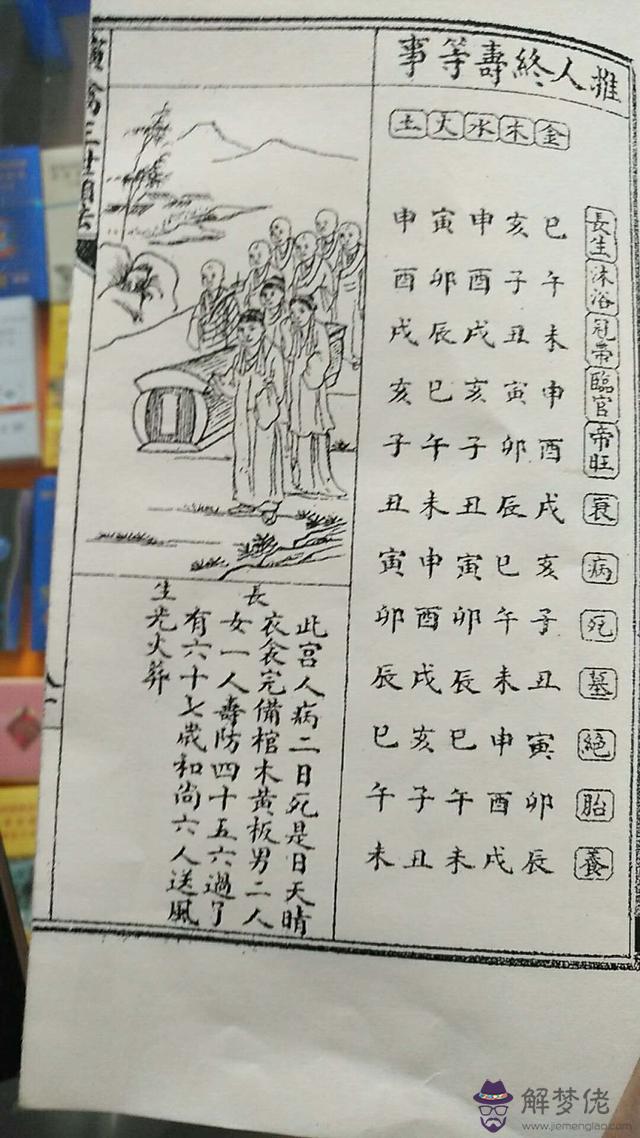 推人終壽等事
長生沐浴冠帶臨官帝旺衰病死墓絕胎養
金巳午未申酉戌亥子丑寅卯辰
木亥子丑寅卯辰巳午未申酉戌
水申酉戌亥子丑寅卯辰巳午未
火寅卯辰巳午未申酉戌亥子丑
土申酉戌亥子丑寅卯辰巳午未
長生
此宮人病二日死是日天晴
衣衾完備棺木黃板男二人
女一人壽防四十五六過了
有六十七歲和尚六人送風
光火葬
禽三世相法
解梦佬
www.jiemenglao.com